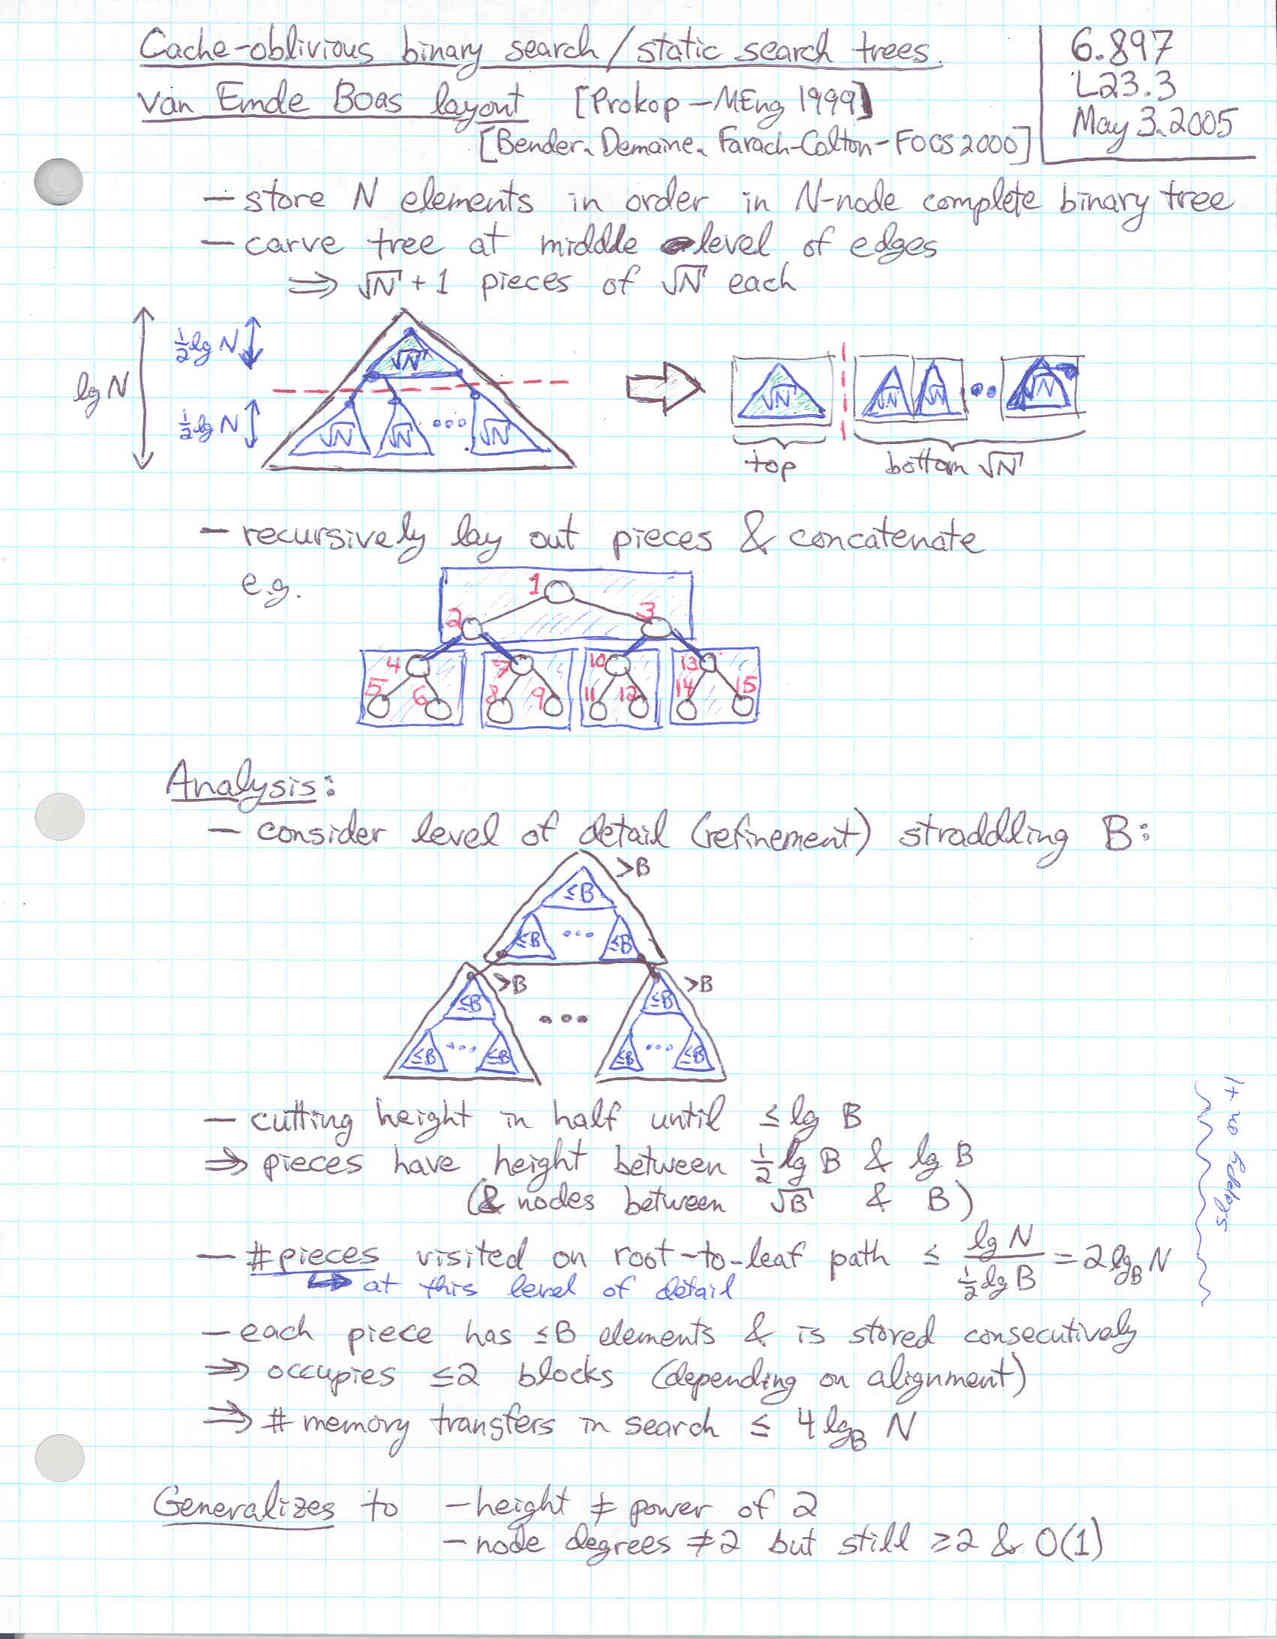 Cache-oblivious binary search/static search trees.
van Emde Boas layout [Prokop - MEng 1999]
[Bender, Demaine, Farach-Colton - FOCS 2000]
6.897
L23.3
May 3, 2005
- store N elements in order in N-node complete binary tree
- carve tree at middle level of edges
⇒ √N + 1 pieces of √N each
lg N
½ lg N
½ lg N
√N
√N √N ... √N
√N √N √N ... √N
top bottom √N
- recursively lay out pieces & concatenate
e.g.
1
2 3
4 7 10 13
5 6 8 9 11 12 14 15
Analysis:
- consider level of detail (refinement) straddling B:
>B
≤B
≤B ... ≤B
>B >B
≤B ... ≤B
≤B ... ≤B ≤B ... ≤B
- cutting height in half until ≤ lg B
⇒ pieces have height between ½ lg B & lg B
(& nodes between √B & B)
- #pieces visited on root-to-leaf path ≤ lg N / ½ lg B = 2 lg_B N
↳ at this level of detail
±1 no
- each piece has ≤B elements & is stored consecutively
⇒ occupies ≤2 blocks (depending on alignment)
⇒ # memory transfers in search ≤ 4 lg_B N
Generalizes to - height ≠ power of 2
- node degrees ≠2 but still ≥2 & O(1)